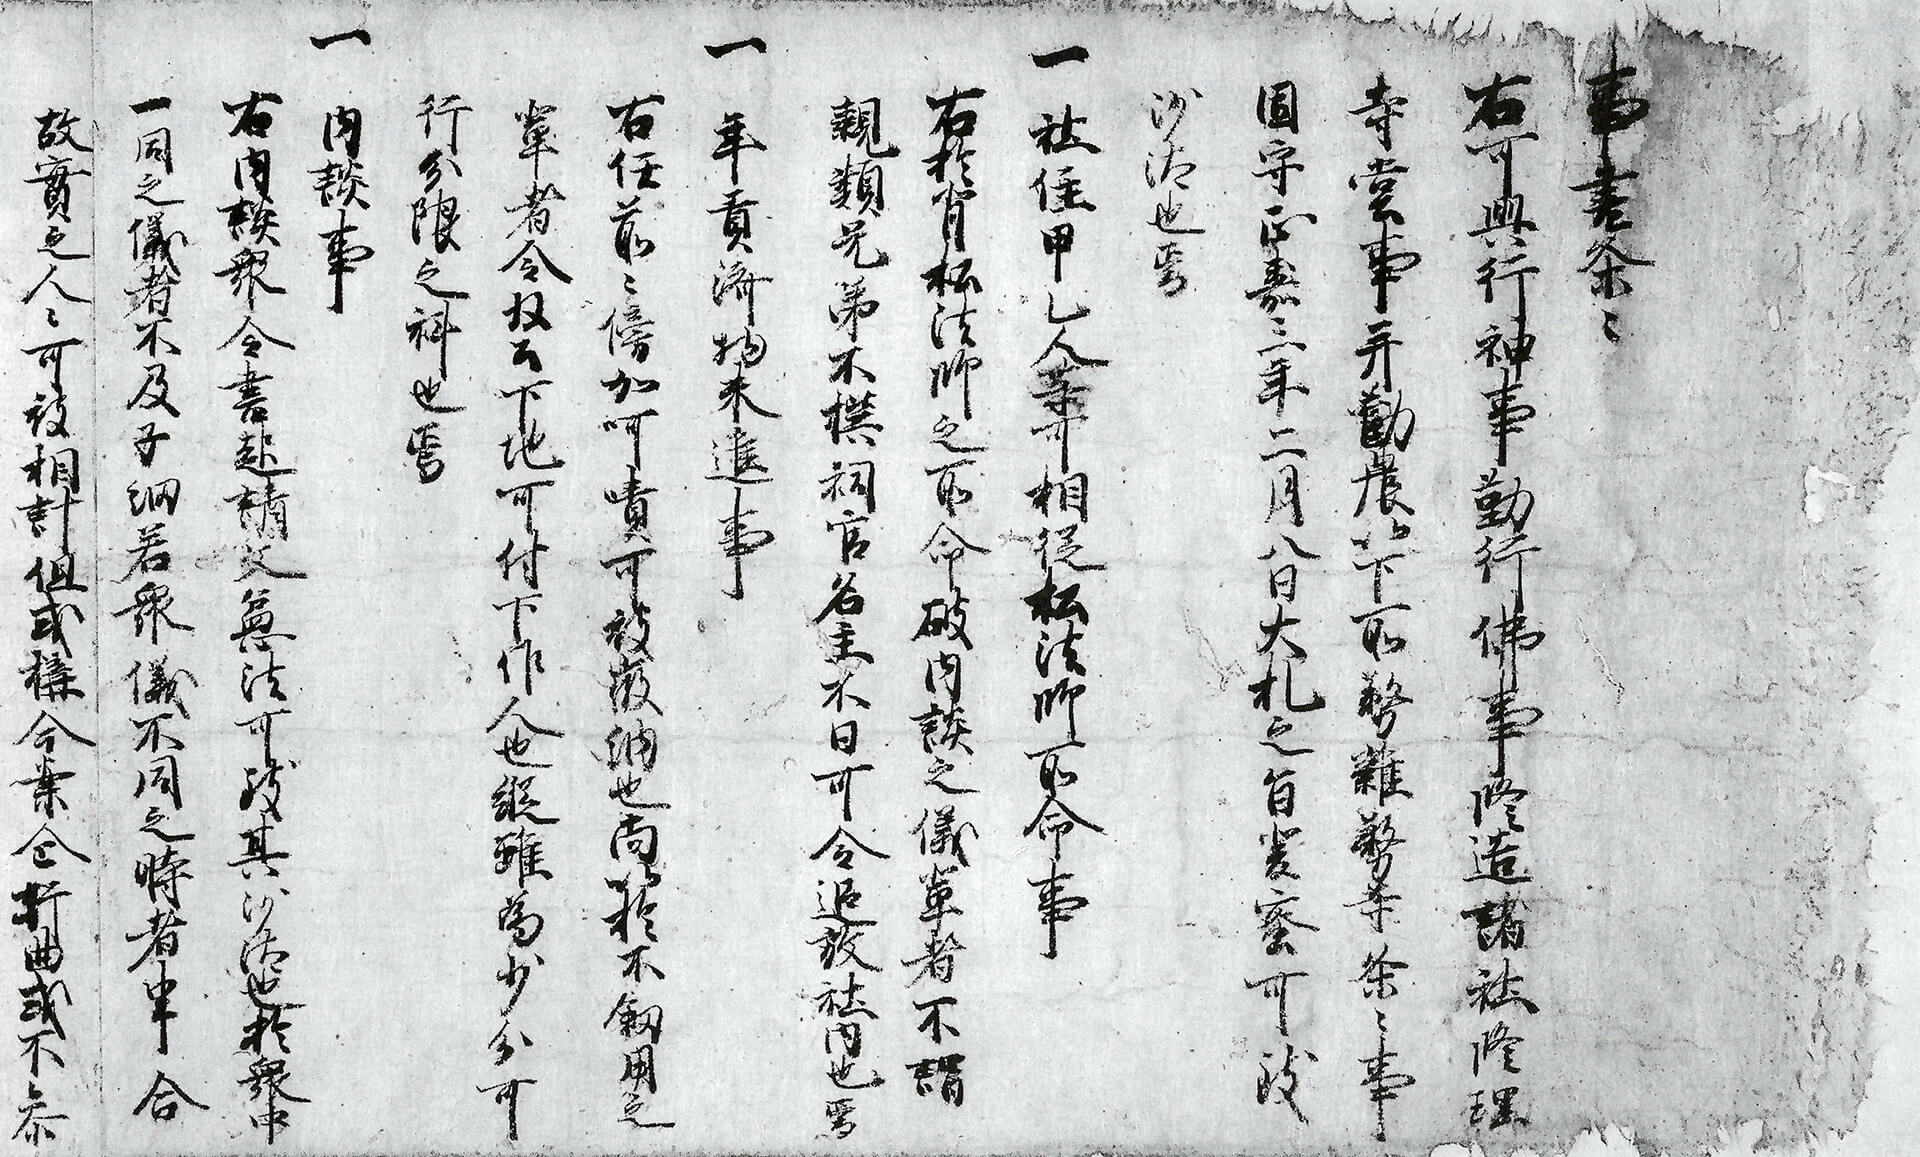 事書条〻
右可興行神事勤行佛事修造諸社修理
寺堂事并勸農以下所務雜務等条〻事
固守正嘉三年二月八日大札之旨炭察可致
沙汰也焉
一 社住甲乙人等可相從松法師所命事
右於背松法師之所命破内談之儀輩者不謂
親類兄弟不撰祠官名主不日可令追放社内也焉
一 年貢濟物未進事
右任前〻傍加呵嘖可被徴納也尚以於不叙用之
輩者令収公下地可付下作人也縦雖為少分可
行分限之科也焉
一 内談事
右内談衆令書起請文無法可致其沙汰也於衆中
一同之儀者不及子細若衆儀不同之時者申合
故實之人〻可被相計但或構今案令折曲或不参